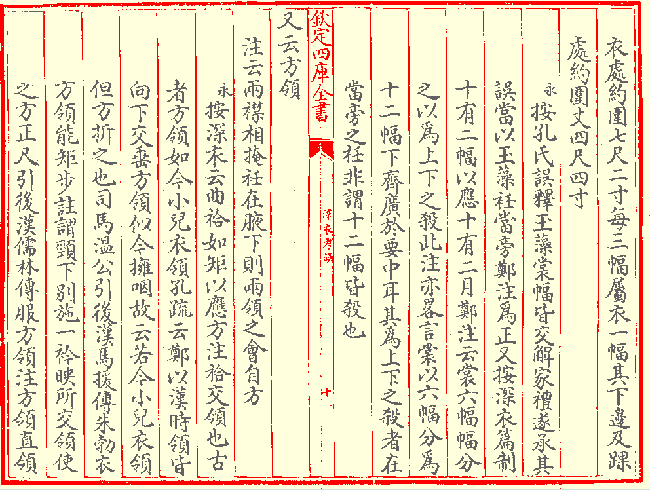 衣處約圍七尺二寸每三幅屬衣一幅其下邊及踝
處約圍丈四尺四寸
永按孔氏誤釋玉藻裳幅皆交解家禮遂承其
誤當以玉藻衽當旁鄭注為正又按深衣篇制
十有二幅以應十有二月鄭注云裳六幅幅分
之以為上下之殺此注亦畧言裳以六幅分為
十二幅下齊廣於要中耳其為上下之殺者在
當旁之衽非謂十二幅皆殺也
欽定四庫全書
深衣考誤
十
又云方領
注云兩襟相掩衽在腋下則兩領之會自方
永按深衣云曲袷如矩以應方注袷交領也古
者方領如今小兒衣領孔疏云鄭以漢時領皆
向下交垂方領似今擁咽故云若今小兒衣領
但方折之也司馬溫公引後漢馬援傳朱勃衣
方領能矩步註謂頸下别施一衿映所交領使
之方正又引後漢儒林傳服方領注方領直領